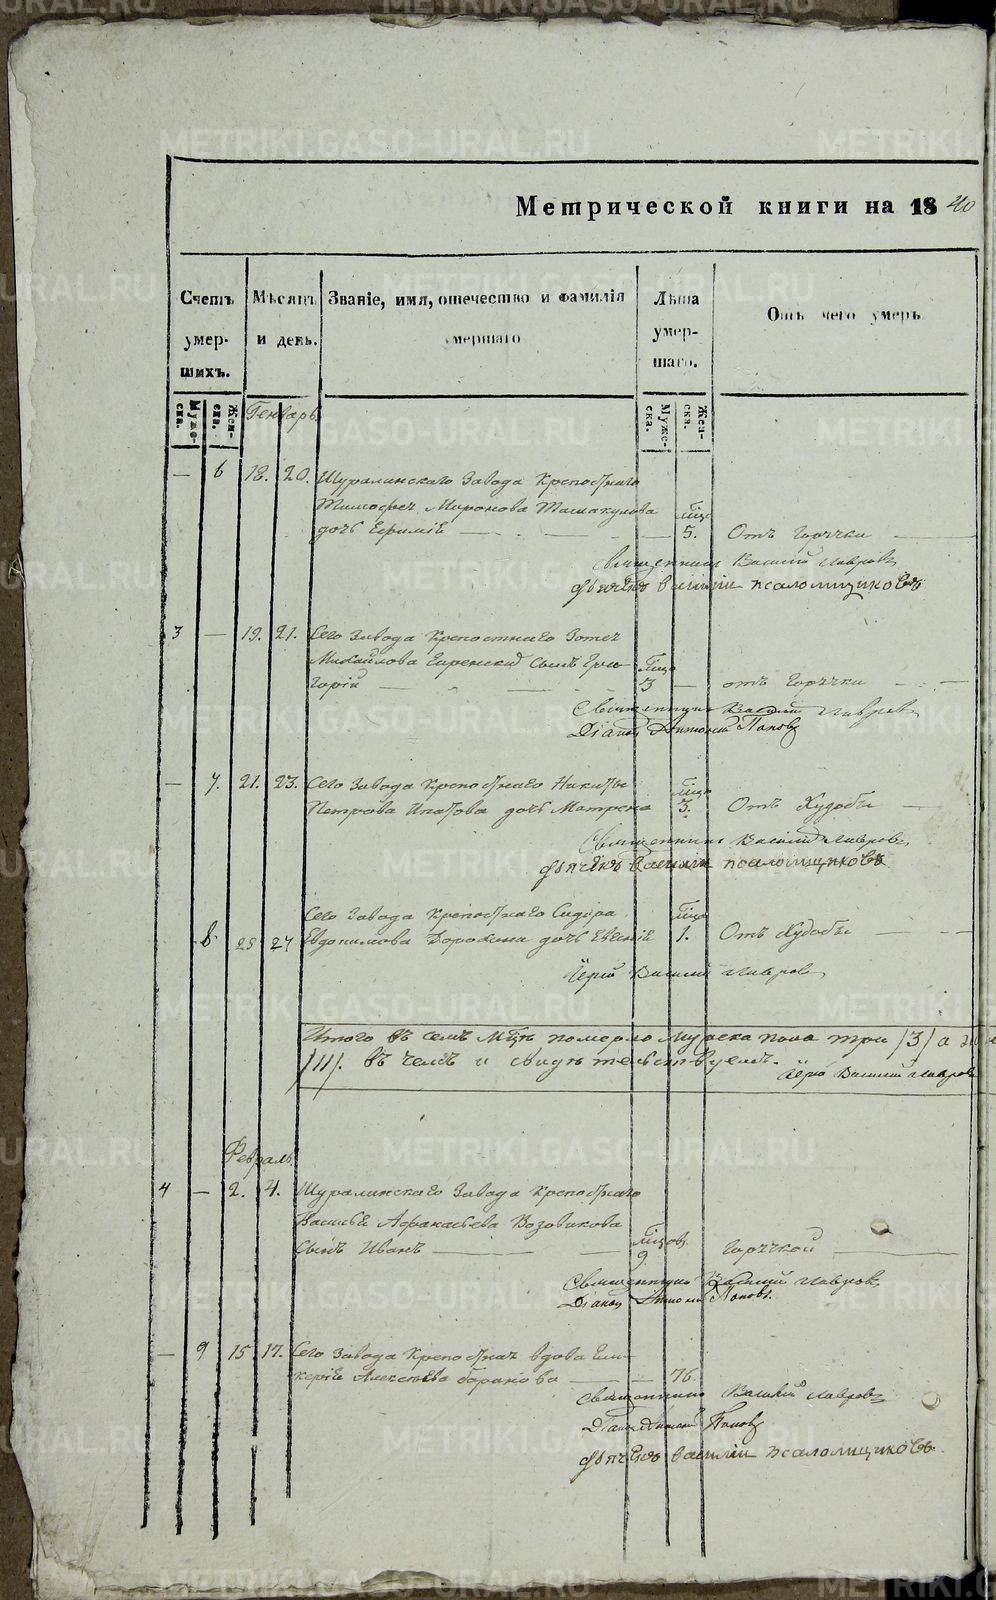 Метрической книги на 1840
Счетъ умер-шихъ.
Мѣсяцъ и день.
Званіе, имя, отечество и фамилія умершаго
Лѣта умер-шаго.
Отъ чего умеръ
Муже-ска.
Жен-ска.
Муже-ска.
Жен-ска.
Генварь
— 6 18. 20. Шуралинскаго Завода Крепостнаго
Тимофея Миронова
дочь Ефимія — 5. Отъ Горячки
Священникъ Василий Лавровъ
дьячекъ василіи псаломщиковъ
3 — 19. 21. Сего Завода Крепостнаго Зотея
Михайлова сынъ Гри-
горій — 3 — отъ Горячки
Священникъ Василий Лавровъ
Діаконъ Антоній Поповъ
— 7. 21. 23. Сего Завода Крепостнаго Никиты
Петрова Ипатова дочь Матрена 3. Отъ Худобы
Священникъ Василий Лавровъ
дьячекъ василіи псаломщиковъ
Сего Завода Крепостнаго Сидора
8 25 27 Евдокимова Бородина дочь Евгенія 1. Отъ Худобы
Іерей Василий Лавровъ
Итого въ семъ Мцѣ померло Мужеска пола три /3/ а
въ чемъ и свидѣтельствуемъ.
Іерей Василий Лавровъ
Февраль
4 — 2. 4. Шуралинскаго Завода Крепостнаго
Василья Афанасьева Возовикова
Сынъ Иванъ — 9. Горячкой
Священникъ Василий Лавровъ
Діаконъ Антоній Поповъ.
— 9 15 17. Сего Завода Крепостная вдова Гли-
керія Алексѣева — 76.
Священникъ Василий Лавровъ
Діаконъ Антоній Поповъ
дьячекъ василіи псаломщиковъ.
METRIKI.GASO-URAL.RU